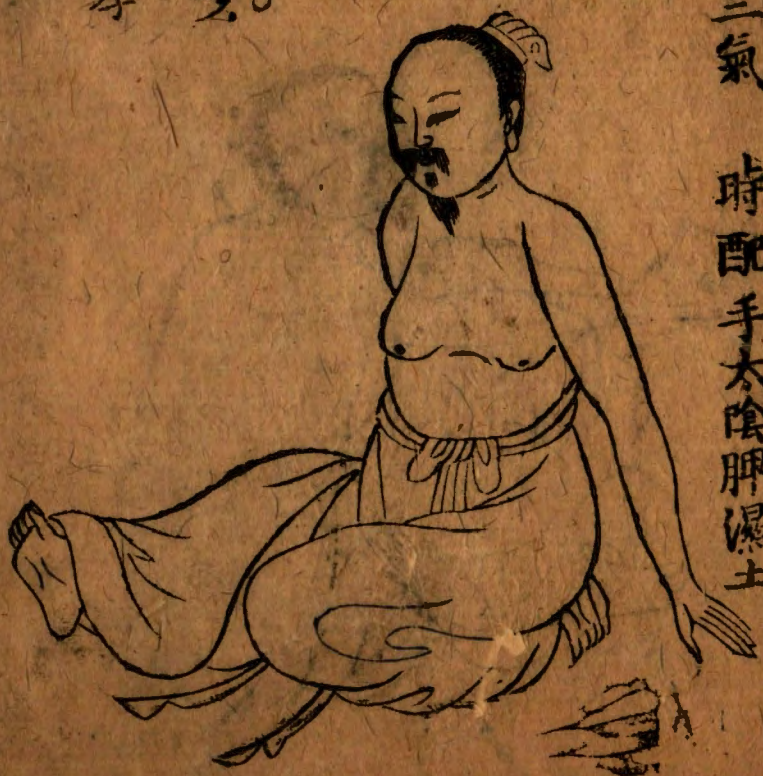 三氣　時配手太陰脾濕土